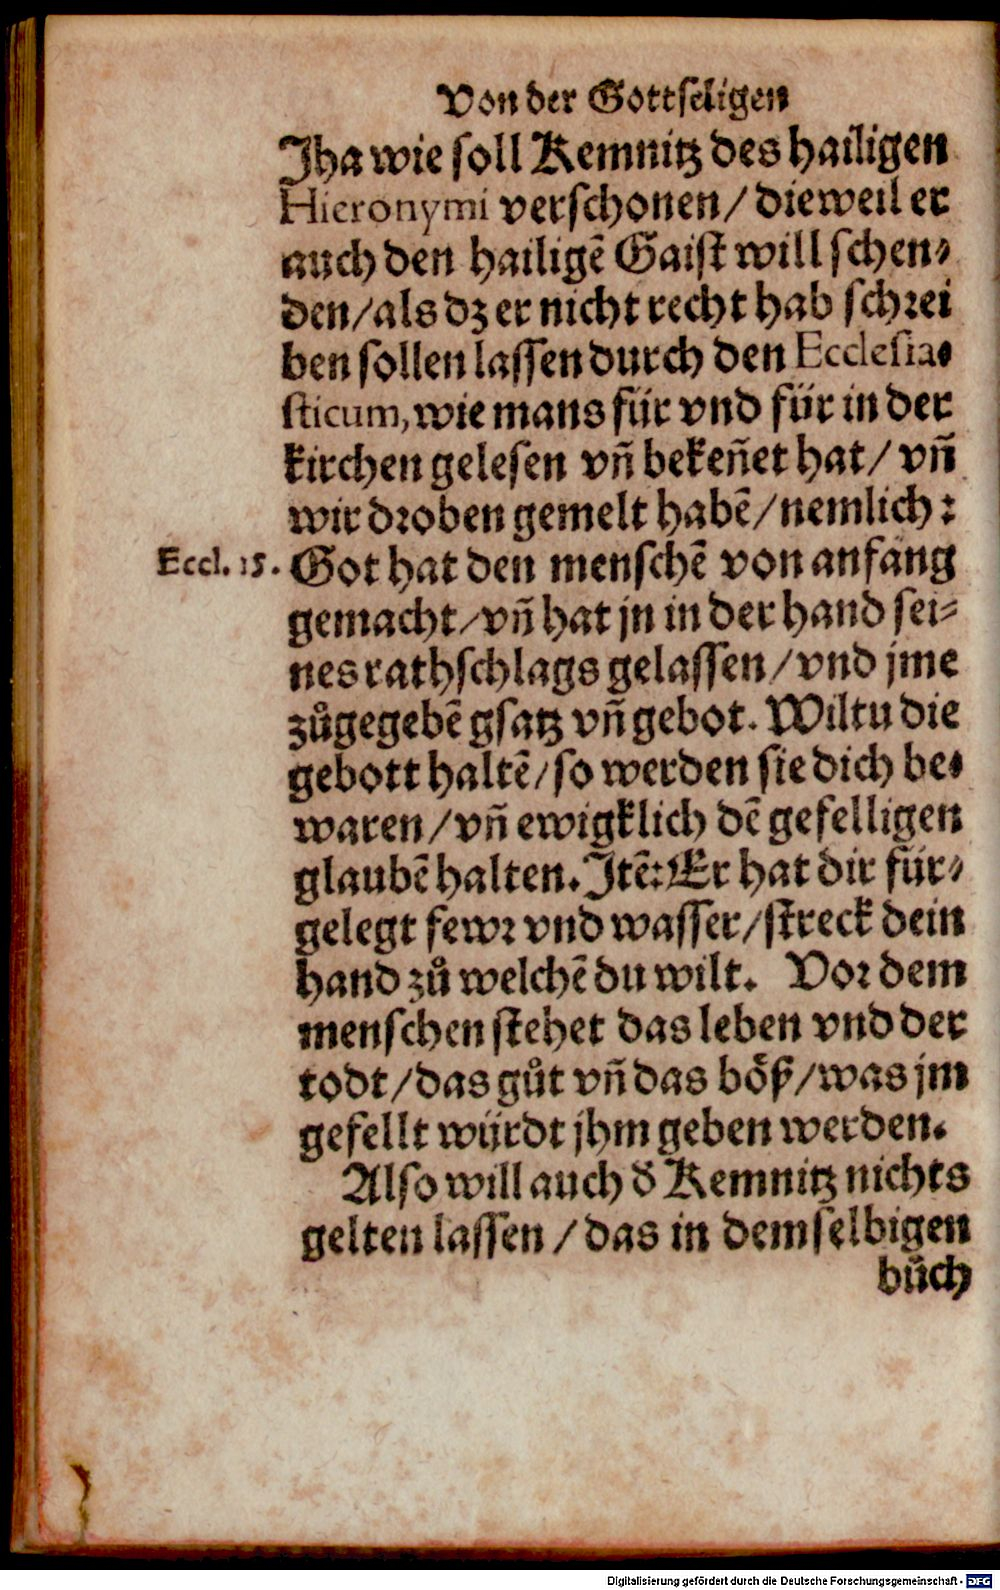 Von der Gottseligen
Jha wie soll Kemnitz des hailigen
Hieronymi verschonen/ dieweil er
auch den hailigẽ Gaist will schen⸗
den/als dz er nicht recht hab schꝛei
ben sollen lassen durch den Ecclesia⸗
sticum, wie mans für vnd für in der
kirchen gelesen vñ bekeñet hat/ vñ
wir dꝛoben gemelt habẽ/nemlich:
Eccl. 15. Got hat den menschẽ von anfang
gemacht/vñ hat jn in der hand sei⸗
nes rathschlags gelassen/vnd jme
zůgegebẽ gsatz vñ gebot. Wiltu die
gebott haltẽ/so werden sie dich be⸗
waren/vñ ewigklich dẽ gefelligen
glaubẽ halten. Jtẽ: Er hat dir für⸗
gelegt fewꝛ vnd wasser/streck dein
hand zů welchẽ du wilt. Voꝛ dem
menschen stehet das leben vnd der
todt/das gůt vñ das böß/was jm
gefellt würdt jhm geben werden.
Also will auch d̕ Kemnitz nichts
gelten lassen/das in demselbigen
bůch
Digitalisierung gefördert durch die Deutsche Forschungsgemeinschaft - DFG